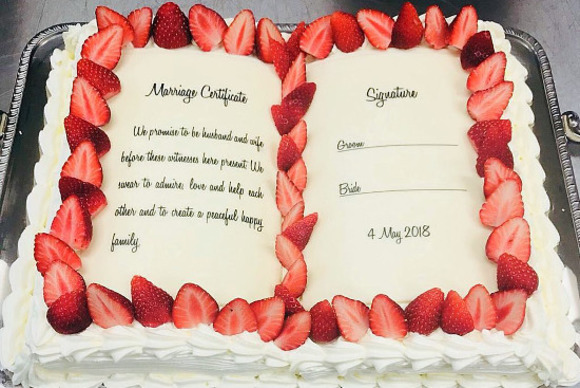 Marriage Certificate
We promise to be husband and wife
before these witnesses here present. We
swear to admire, love and help each
other and to create a peaceful happy
family.
Signature
Groom
Bride
4 May 2018